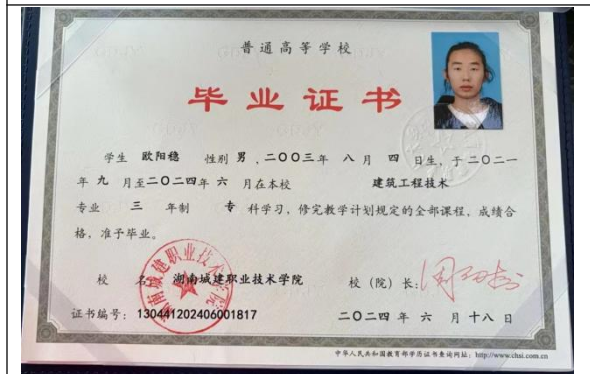 普通高等学校
毕业证书
学生 欧阳稳 性别 男 、二〇〇三年 八 月 四 日生，于二〇二一
年 九 月至二〇二四年 六 月在本校 建筑工程技术
专业 三 年制 专 科学习，修完教学计划规定的全部课程，成绩合
格，准予毕业。
校 名：湖南城建职业技术学院 校（院）长：
证书编号：130441202406001817 二〇二四 年 六 月 十八 日
中华人民共和国教育部学历证书查询网址：http://www.chsi.com.cn